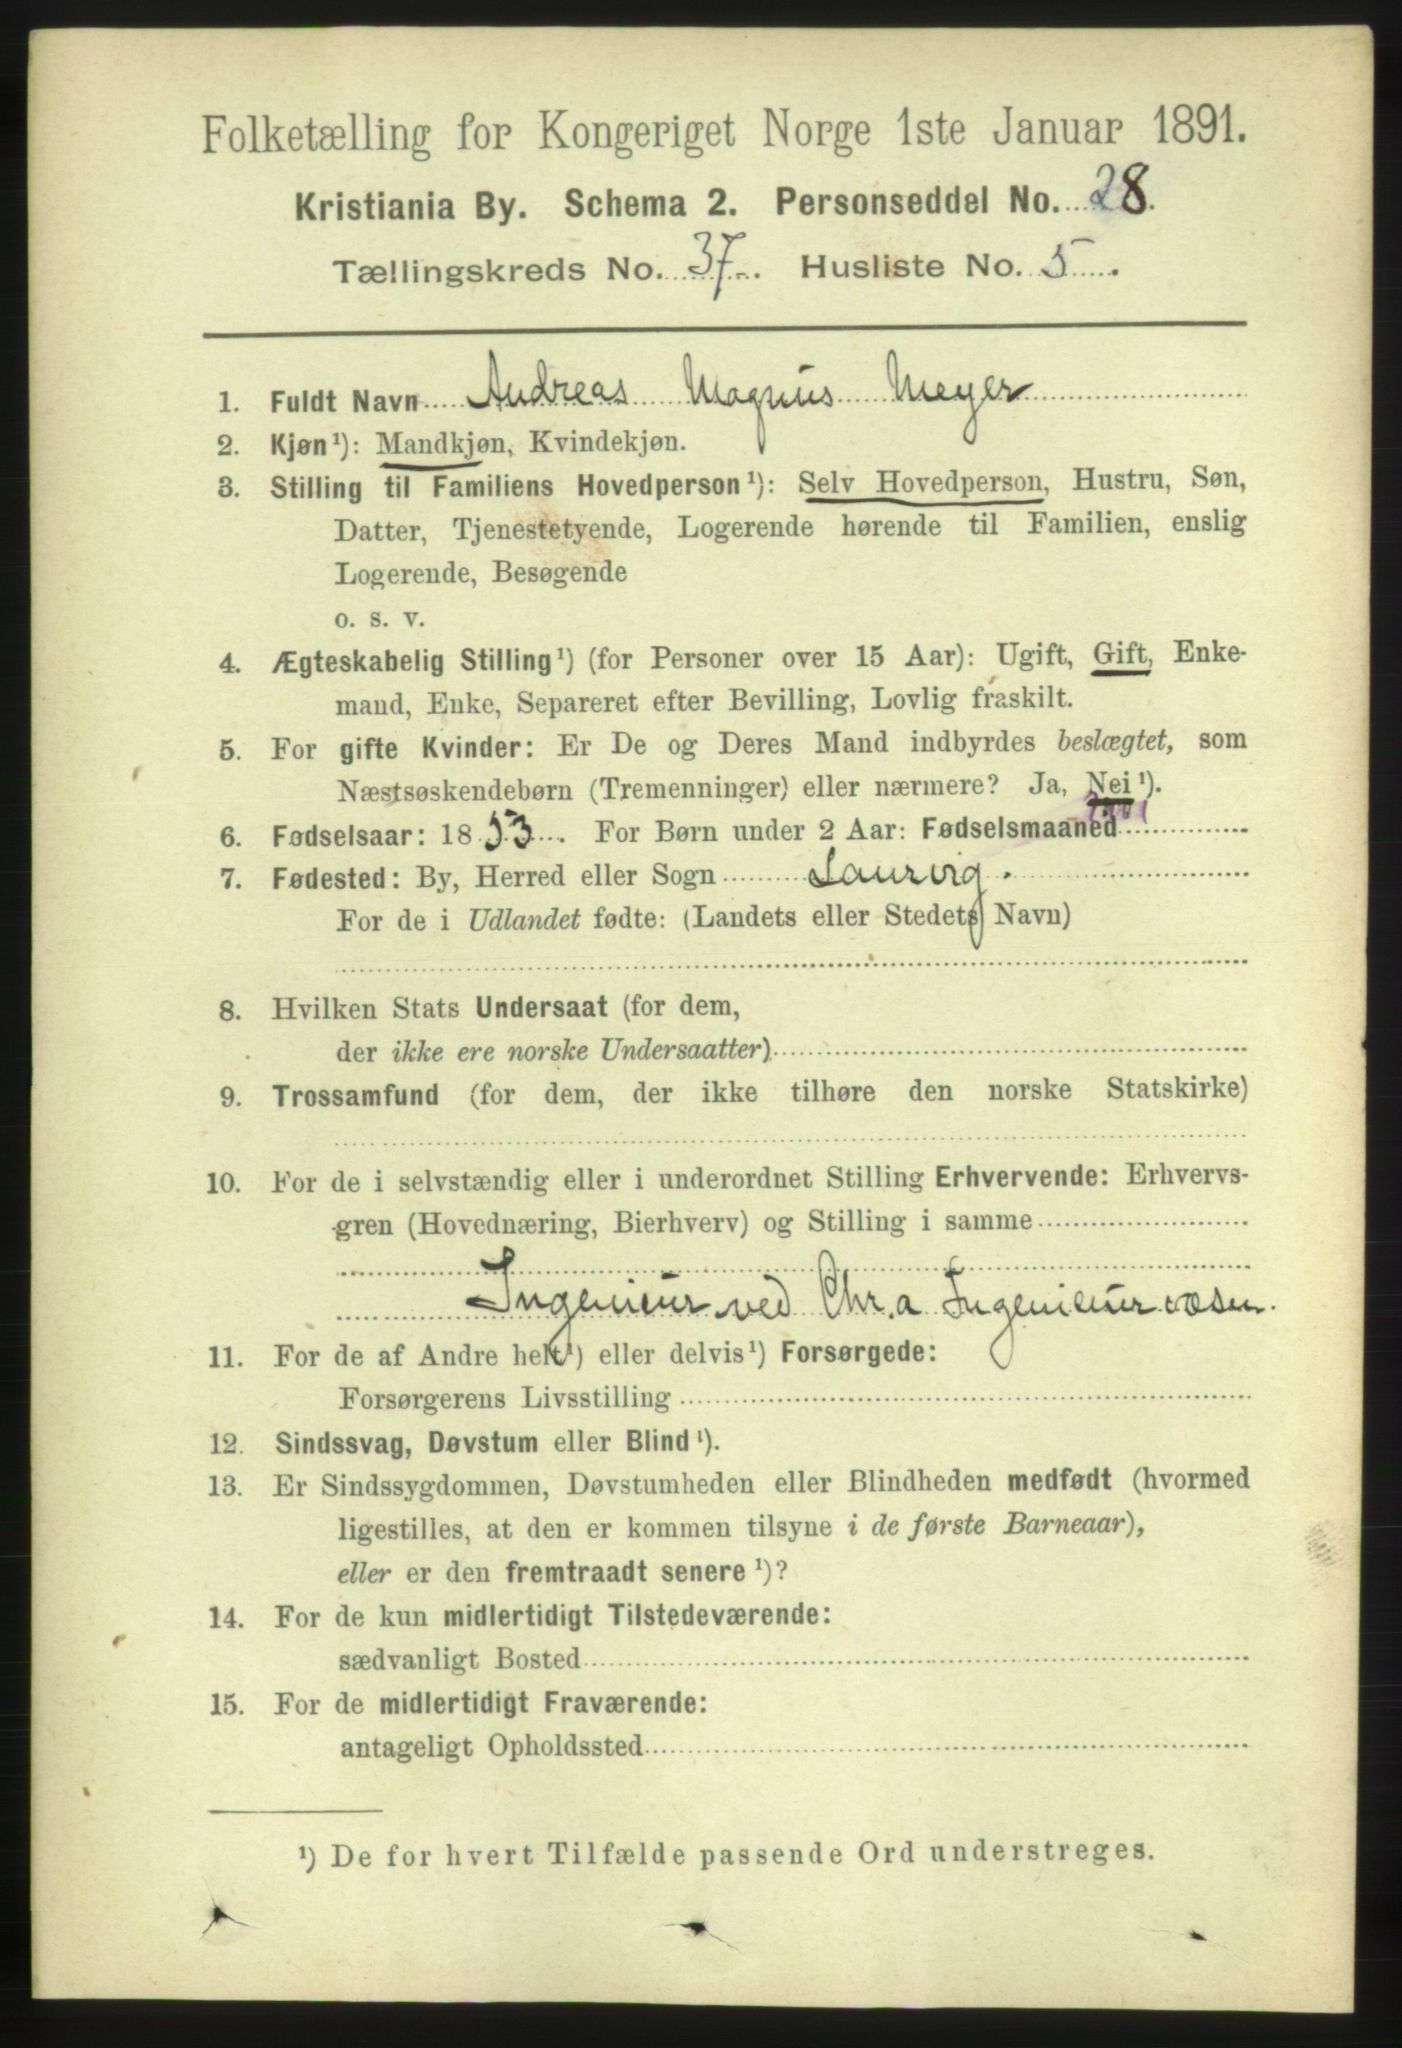 Folketælling for Kongeriget Norge 1ste Januar 1891.
Kristiania By. Schema 2. Personseddel No. 28.
Tællingskreds No. 37. Husliste No. 5.
1. Fuldt Navn Andreas Magnus Meyer
2. Kjøn ¹): Mandkjøn, Kvindekjøn.
3. Stilling til Familiens Hovedperson ¹): Selv Hovedperson, Hustru, Søn,
Datter, Tjenestetyende, Logerende hørende til Familien, enslig
Logerende, Besøgende
o. s. v.
4. Ægteskabelig Stilling ¹) (for Personer over 15 Aar): Ugift, Gift, Enke-
mand, Enke, Separeret efter Bevilling, Lovlig fraskilt.
5. For gifte Kvinder: Er De og Deres Mand indbyrdes beslægtet, som
Næstsøskendebørn (Tremenninger) eller nærmere? Ja, Nei ¹).
6. Fødselsaar: 1853. For Børn under 2 Aar: Fødselsmaaned
7. Fødested: By, Herred eller Sogn Laurvig.
For de i Udlandet fødte: (Landets eller Stedets Navn)
8. Hvilken Stats Undersaat (for dem,
der ikke ere norske Undersaatter)
9. Trossamfund (for dem, der ikke tilhøre den norske Statskirke)
10. For de i selvstændig eller i underordnet Stilling Erhvervende: Erhvervs-
gren (Hovednæring, Bierhverv) og Stilling i samme
Ingenieur ved Chr.a Ingenieurvæsen.
11. For de af Andre helt ¹) eller delvis ¹) Forsørgede:
Forsørgerens Livsstilling
12. Sindssvag, Døvstum eller Blind ¹).
13. Er Sindssygdommen, Døvstumheden eller Blindheden medfødt (hvormed
ligestilles, at den er kommen tilsyne i de første Barneaar),
eller er den fremtraadt senere ¹)?
14. For de kun midlertidigt Tilstedeværende:
sædvanligt Bosted
15. For de midlertidigt Fraværende:
antageligt Opholdssted
¹) De for hvert Tilfælde passende Ord understreges.